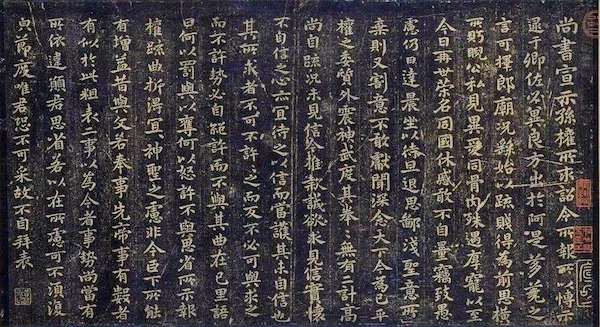 尚書宣示孫權所求詔令所報所以博示
逮于卿佐必冀良方出於阿是芻蕘之
言可擇郎廟況繇始以疏賤得為前恩橫
所盻睨公私見異愛同骨肉殊遇厚寵以至
今日再世榮名同國休慼敢不自量竊致愚
慮仍日達晨坐以待旦退思鄙淺聖意所
棄則又割意不敢獻聞深念天下今為已平
權之委質外震神武度其拳〻無有二計高
尚自疏況未見信今推款誠欲求見信實懷
不自信之心亦宜待之以信而當護其未自信也
其所求者不可不許〻之而反不必可與求之
而不許勢必自絕許而不與其曲在己里語
曰何以罰與以奪何以怒許不與思省所示報
權疏曲折得宜神聖之慮非今臣下所能
有增益昔與文若奉事先帝事有數者
有似於此粗表二事以為今者事勢尚當有
所依違願君思省若以在所慮可不須復
與節度唯君恐不可采故不自拜表